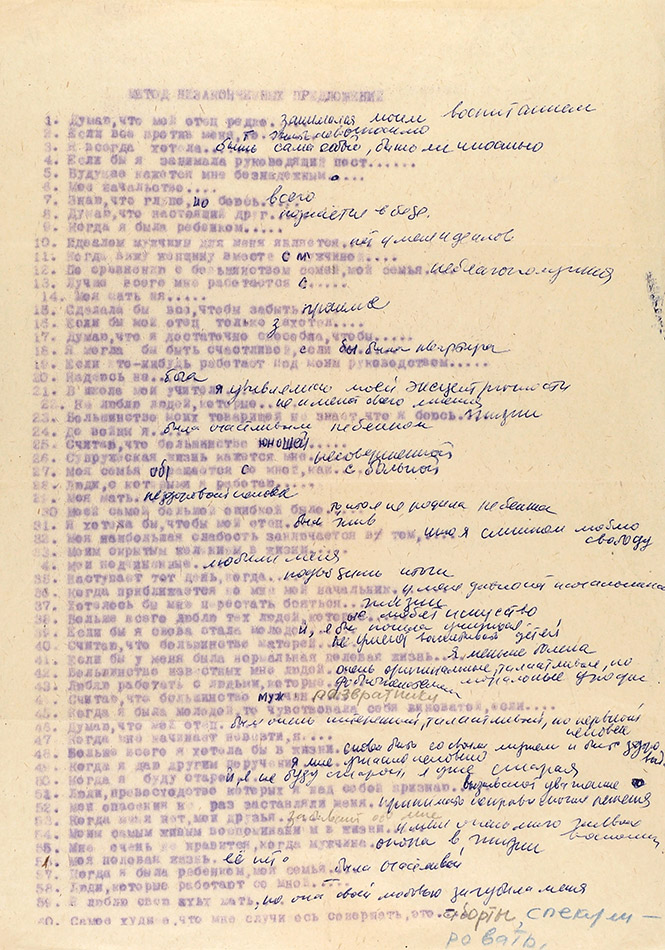 МЕТОД НЕЗАКОНЧЕННЫХ ПРЕДЛОЖЕНИЙ
1. Думаю, что мой отец редко.. занимался моим воспитанием
2. Если все против меня, то
3. Я всегда хотела.. быть сама собой,
4. Если бы я занимала руководящий пост......
5. Будущее кажется мне безнадежным.
6. Мое начальство....
7. Знаю, что глупо, но боюсь.. всего
8. Думаю, что настоящий друг. в беде.
9. Когда я была ребенком.....
10. Идеалом мужчины для меня является. нет у меня идеалов
11. Когда вижу женщину вместе с мужчиной....
12. По сравнению с большинством семей, моя семья. неблагополучная
13. Лучше всего мне работается с.....
14. Моя мать и я.....
15. Сделала бы все, чтобы забыть
16. Если бы мой отец только захотел.....
17. Думаю, что я достаточно способна, чтобы.....
18. Я могла бы быть счастливой, если бы была квартира
19. Если кто-нибудь работает под моим руководством.....
20. Надеюсь на.. бога
21. В школе мои учителя удивлялись моей эксцентричности
22. Не люблю людей, которые.. не имеют своего мнения
23. Большинство моих товарищей не знает, что я боюсь. жизни
24. До войны я. была счастливым ребенком
25. Считаю, что большинство юношей
26. Супружеская жизнь кажется мне. несовершенной
27. Моя семья обращается со мной, как.. с больной
28. Люди, с которыми я работаю.....
29. Моя мать. нездоровый человек
30. Моей самой большой ошибкой было. что я не родила ребенка
31. Я хотела бы, чтобы мой отец. был жив
32. Моя наибольшая слабость заключается в том, что я слишком люблю свободу
33. Моим скрытым желанием в жизни.....
34. Мои подчиненные. любили меня
35. Наступает тот день, когда.. подводишь итоги
36. Когда приближается ко мне мой начальник. у меня
37. Хотелось бы мне перестать бояться.. жизни
38. Больше всего люблю тех людей, которые любят искусство
39. Если бы я снова стала молодой, я бы
40. Считаю, что большинство матерей.. не умеют воспитывать детей
41. Если бы у меня была нормальная половая жизнь. я меньше болела
42. Большинство известных мне людей. очень оригинальные, талантливые, но моральные уроды.
43. Люблю работать с людьми, которые.
44. Считаю, что большинство мужчин развратники
45. Когда я была молодой, то чувствовала себя виноватой, если.....
46. Думаю, что мой отец. был очень талантливый, но нервный человек
47. Когда мне начинает не везти, я....
48. Больше всего я хотела бы в жизни.
49. Когда я даю другим поручения,
50. Когда я буду старой я не буду старой, я уже старая
51. Люди, превосходство которых над собой признаю. вызывают уважение
52. Мои опасения не раз заставляли меня. принимать решения
53. Когда меня нет, мои друзья. забывают обо мне
54. Моим самым живым воспоминанием в жизни.
55. Мне очень не нравится, когда мужчина.
56. Моя половая жизнь. её нет
57. Когда я была ребенком, моя семья. была счастливой
58. Люди, которые работают со мной....
59. Я люблю свою мать, но она своей любовью загубила меня
60. Самое худшее, что мне случилось совершать, это аборты, спекулировать,